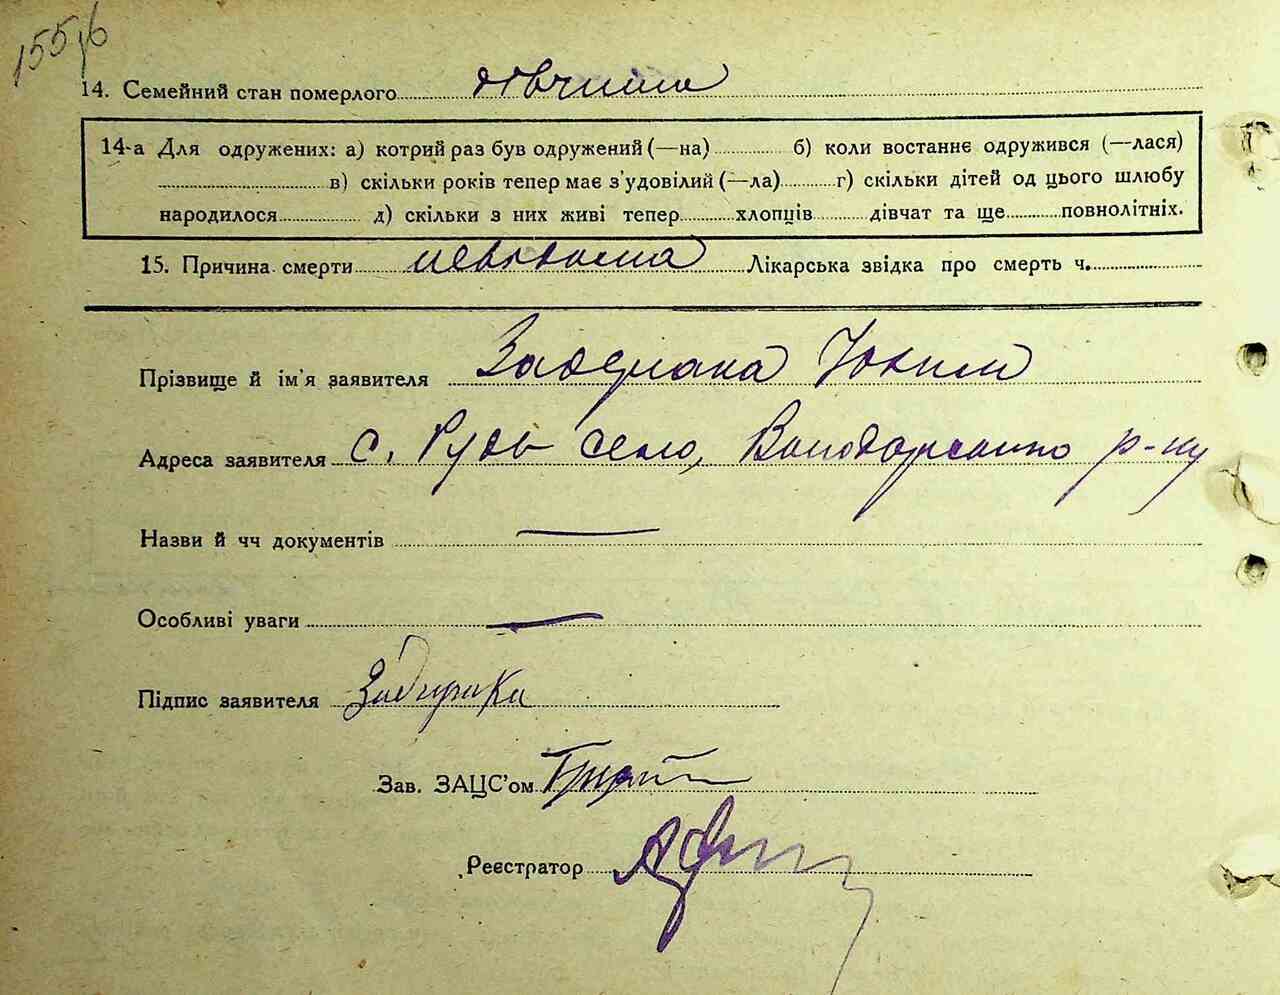 155зв
14. Семейний стан померлого дівчина
14-а Для одружених: а) котрий раз був одружений (—на) б) коли востаннє одружився (—лася)
в) скільки років тепер має з'удовілий (—ла) г) скільки дітей од цього шлюбу
народилося д) скільки з них живі тепер хлопців дівчат та ще повнолітніх.
15. Причина смерти невідома Лікарська звідка про смерть ч.
Прізвище й ім'я заявителя Задирака Юхим
Адреса заявителя с. Рудь село, Володарського р-ну
Назви й чч документів —
Особливі уваги —
Підпис заявителя Задирака
Зав. ЗАЦС'ом
Реєстратор